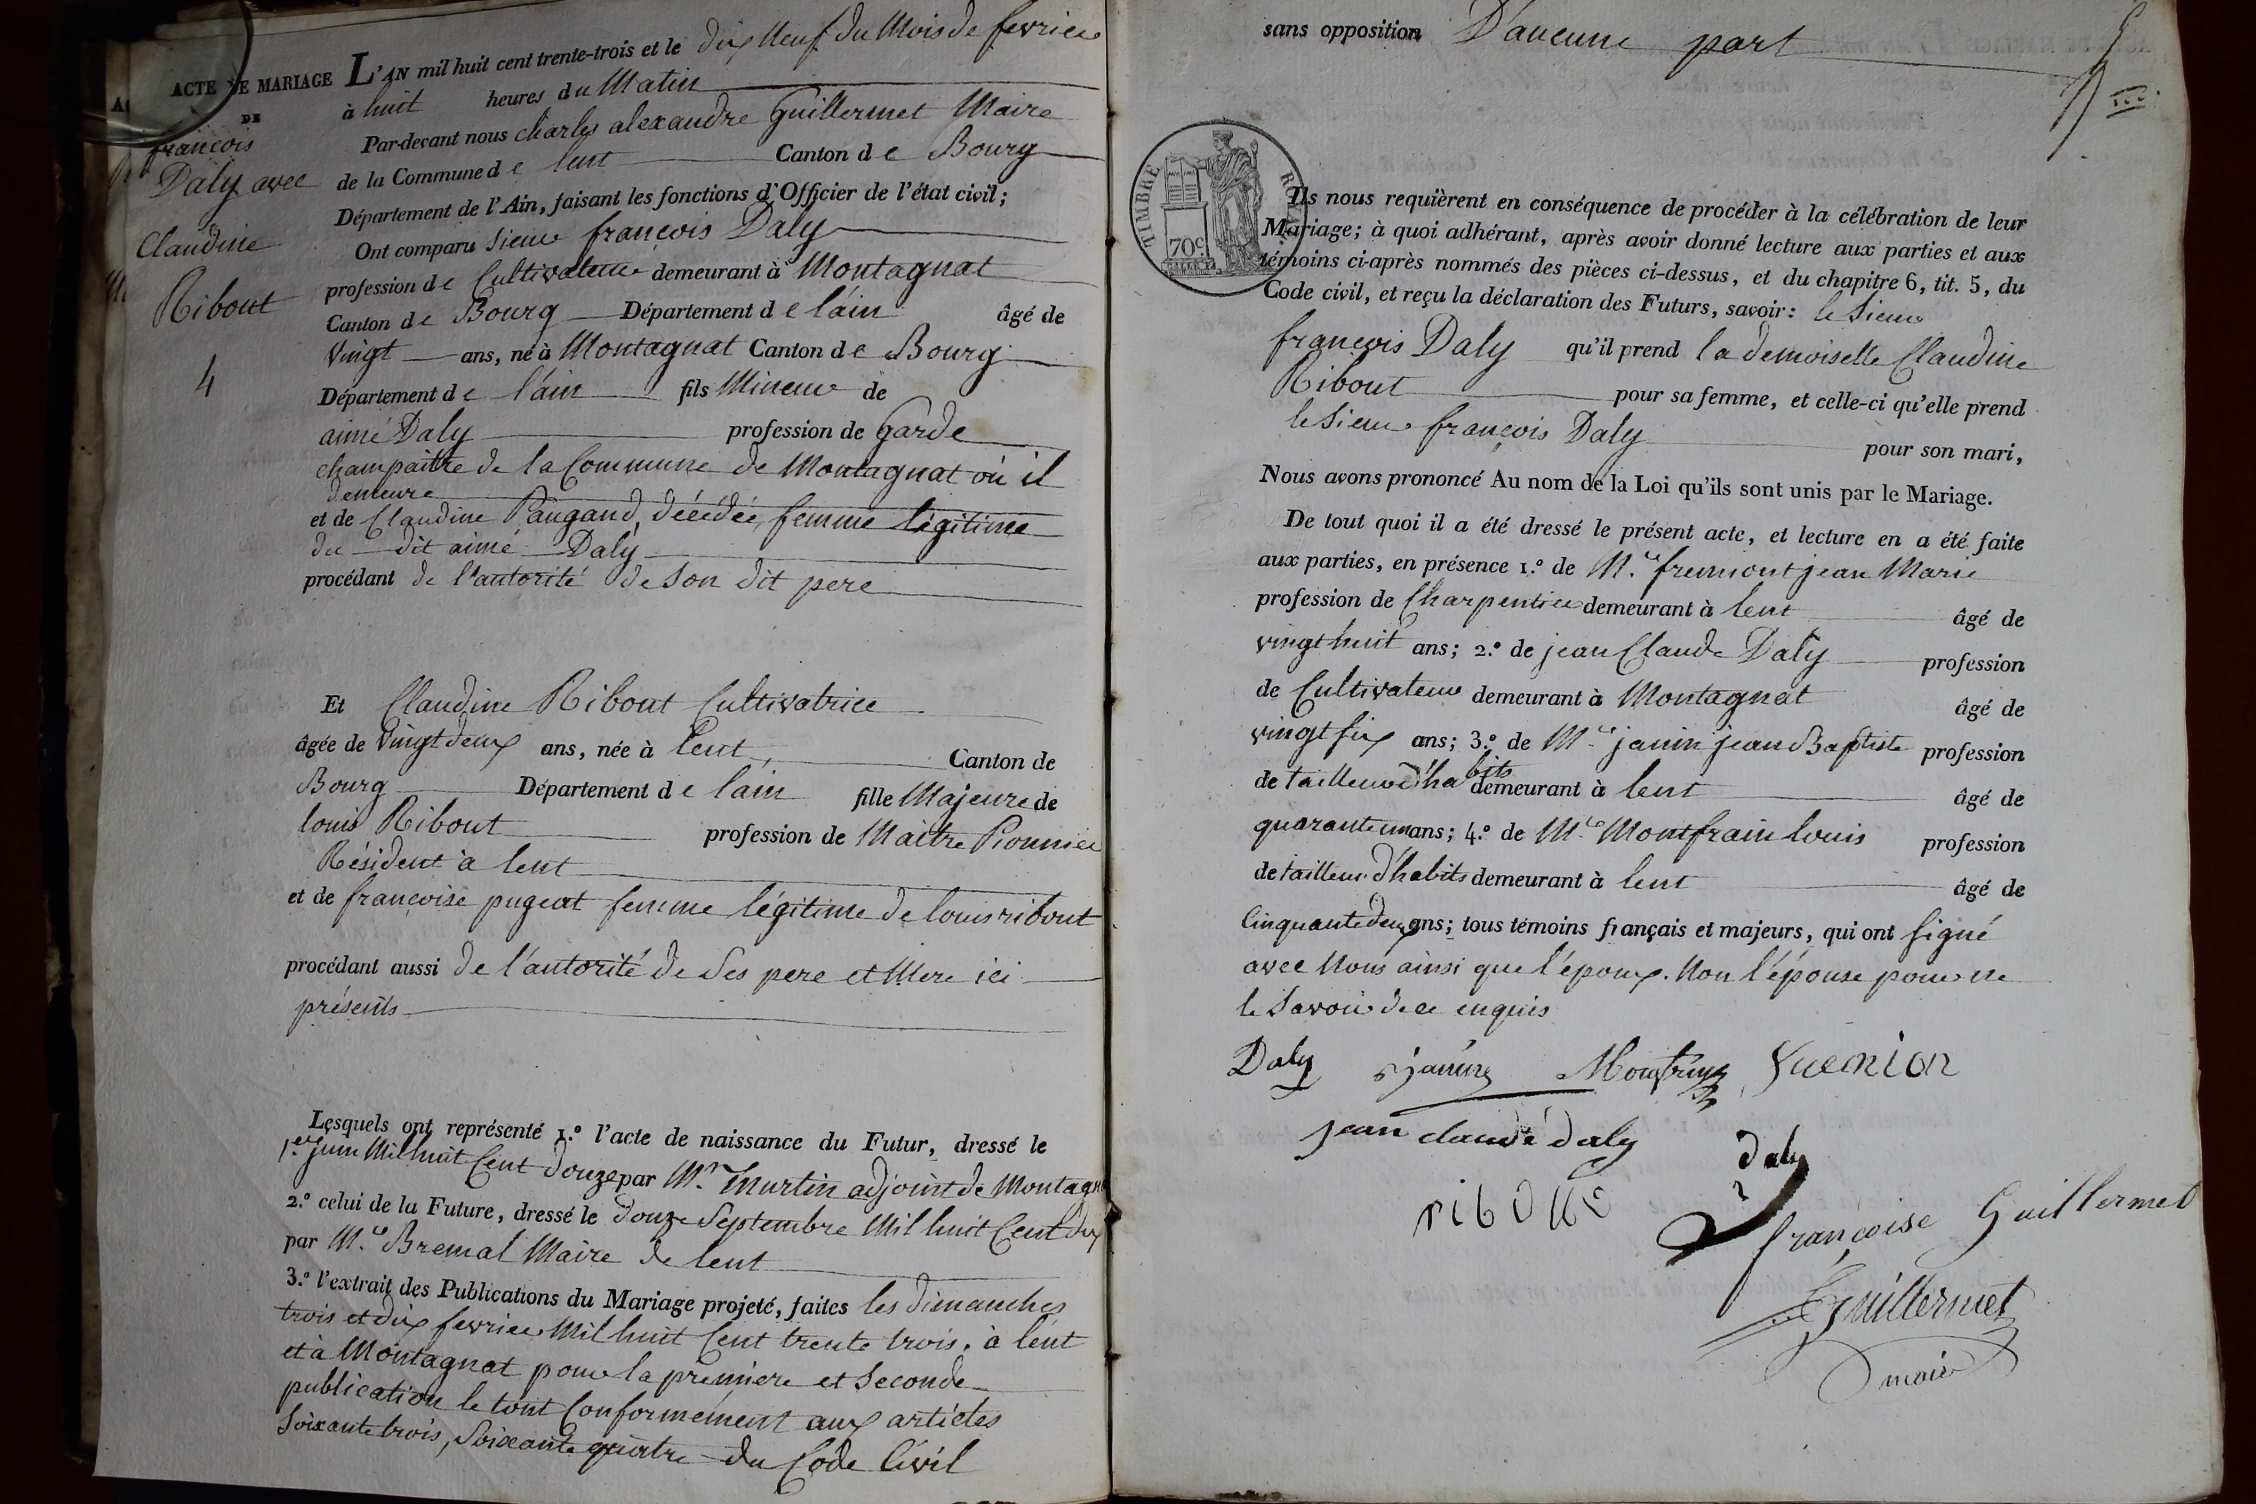 ACTE DE MARIAGE
DE
françois
Daly avec
Claudine
Ribout
4
L'AN mil huit cent trente-trois et le dix Neuf du Mois de fevrier
à huit heures du Matin
Par-devant nous charles alexandre Guillermet Maire
de la Commune de lent Canton de Bourg
Département de l'Ain, faisant les fonctions d'Officier de l'état civil;
Ont comparu Sieur françois Daly
profession de Cultivateur demeurant à Montagnat
Canton de Bourg Département de l'ain âgé de
vingt ans, né à Montagnat Canton de Bourg
Département de l'ain fils Mineur de
aimé Daly profession de Garde
champaître de la Commune de Montagnat où il
demeure
et de Claudine Paugaud, décédée, femme légitime
du dit aimé Daly
procédant de l'autorité de son dit pere
Et Claudine Ribout Cultivatrice
âgée de vingt deux ans, née à Lent, Canton de
Bourg Département de l'ain fille Majeure de
louis Ribout profession de Maître Pionnier
Résident à lent
et de françoise pugeat femme légitime de louis ribout
procédant aussi de l'autorité de Ses pere et Mere ici
présents
Lesquels ont représenté 1.º l'acte de naissance du Futur, dressé le
1.er juin Mil huit Cent douze par M.r Murtin adjoint de Montagn
2.º celui de la Future, dressé le douze Septembre Mil huit Cent dix
par M.r Bremal Maire de lent
3.º l'extrait des Publications du Mariage projeté, faites les dimanches
trois et dix fevrier Mil huit Cent trente trois. à lent
et à Montagnat pour la première et Seconde
publication le tout Conformément aux articles
Soixante trois, Soixante quatre du Code Civil
sans opposition D'aucune part
TIMBRE ROYAL
70c
Ils nous requièrent en conséquence de procéder à la célébration de leur
Mariage; à quoi adhérant, après avoir donné lecture aux parties et aux
témoins ci-après nommés des pièces ci-dessus, et du chapitre 6, tit. 5, du
Code civil, et reçu la déclaration des Futurs, savoir: le Sieur
françois Daly qu'il prend la demoiselle Claudine
Ribout pour sa femme, et celle-ci qu'elle prend
le Sieur françois Daly pour son mari,
Nous avons prononcé Au nom de la Loi qu'ils sont unis par le Mariage.
De tout quoi il a été dressé le présent acte, et lecture en a été faite
aux parties, en présence 1.º de M.r fremiont jean Marie
profession de Charpentier demeurant à lent âgé de
vingt huit ans; 2.º de jean Claude Daly profession
de Cultivateur demeurant à Montagnat âgé de
vingt six ans; 3.º de M.r janin jean Baptiste profession
de tailleur d'habits demeurant à lent âgé de
quarante un ans; 4.º de M.r Montfrain louis profession
de tailleur d'habits demeurant à lent âgé de
Cinquante deux ans; tous témoins français et majeurs, qui ont signé
avec Nous ainsi que l'époux. Non l'épouse pour ne
le Savoir de ce enquis
Daly janin
jean claude daly
daly
françoise Guillermet
Guillermet
maire